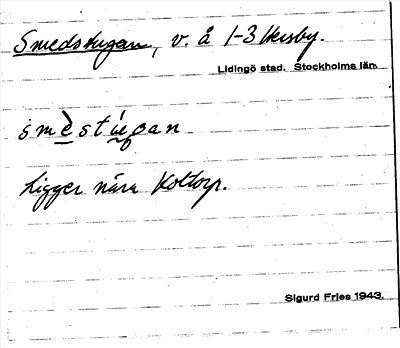 Smedstugan, v. å 1-3 Hersby.
Lidingö stad. Stockholms län.
smèstúgan
Ligger nära Koltorp.
Sigurd Fries 1943.